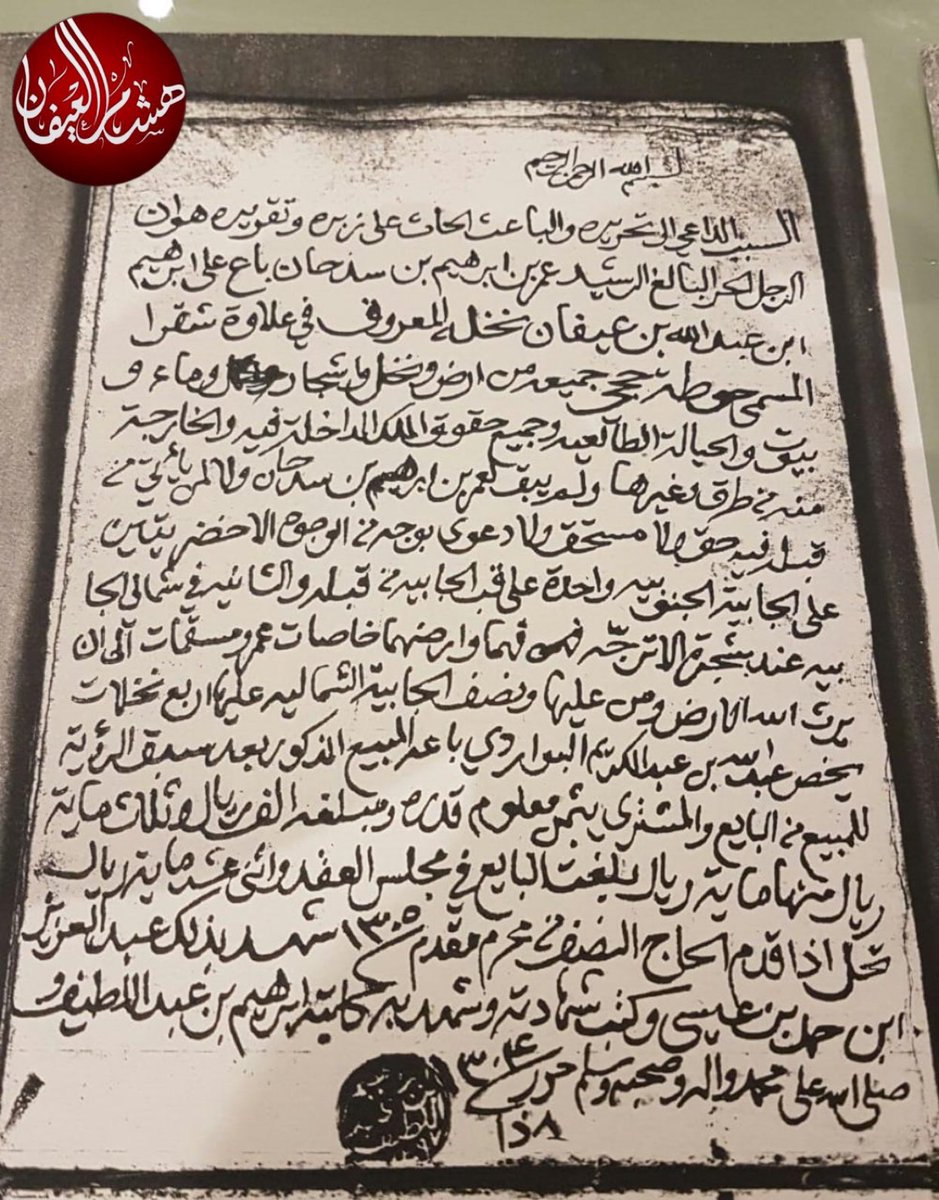 هشام العيفان
بسم الله الرحمن الرحيم
السبب الداعي الى تحريره والباعث الحاث على زبره وتقريره هو ان
الرجل الحر البالغ الرشيد عمر بن ابرهيم بن سدحان باع على ابرهيم
ابن عبد الله بن عيفان نخله المعروف في علاوة شقرا
المسمى حوطة حجي جميعه من ارض ونخل واشجار وماء و
بيوت والحيالة الطالعيه وجميع حقوق الملك الداخلة فيه والخارجة
منه من طرق وغيرها ولم يبق لعمر بن ابرهيم بن سدحان ولا لمن يأتي من
قبله فيه حق ولا مستحق ولا دعوى بوجه من الوجوه الا خضريتين
على الجابية الجنوبيه واحدة على قب الجابيه من قبله والثانيه في شمالي الجا
بيه عند شجرة الاترجه وارضهما خاصات عمر ومسقمات الى ان
يرث الله الارض ومن عليها ونصف الجابية الشماليه عليها اربع نخلات
يخص عبد الله بن عبد الكريم البواردي باعه المبيع المذكور بعد سبق الرؤية
للمبيع من البايع والمشتري بثمن معلوم قدره ومبلغه الف ريال وثلاث ماية
ريال منها ماية ريال بلغت البايع في مجلس العقد واثنى عشر ماية ريال
تحل اذا قدم الحاج النصف من محرم مقدم ١٣٠٥ شهد بذلك عبد العزيز
ابن حمد بن عيسى وكتب شهادته وشهد به كاتبه ابرهيم بن عبد اللطيف و
صلى الله على محمد واله وصحبه وسلم حرر ١٣٠٤
٨ ذا